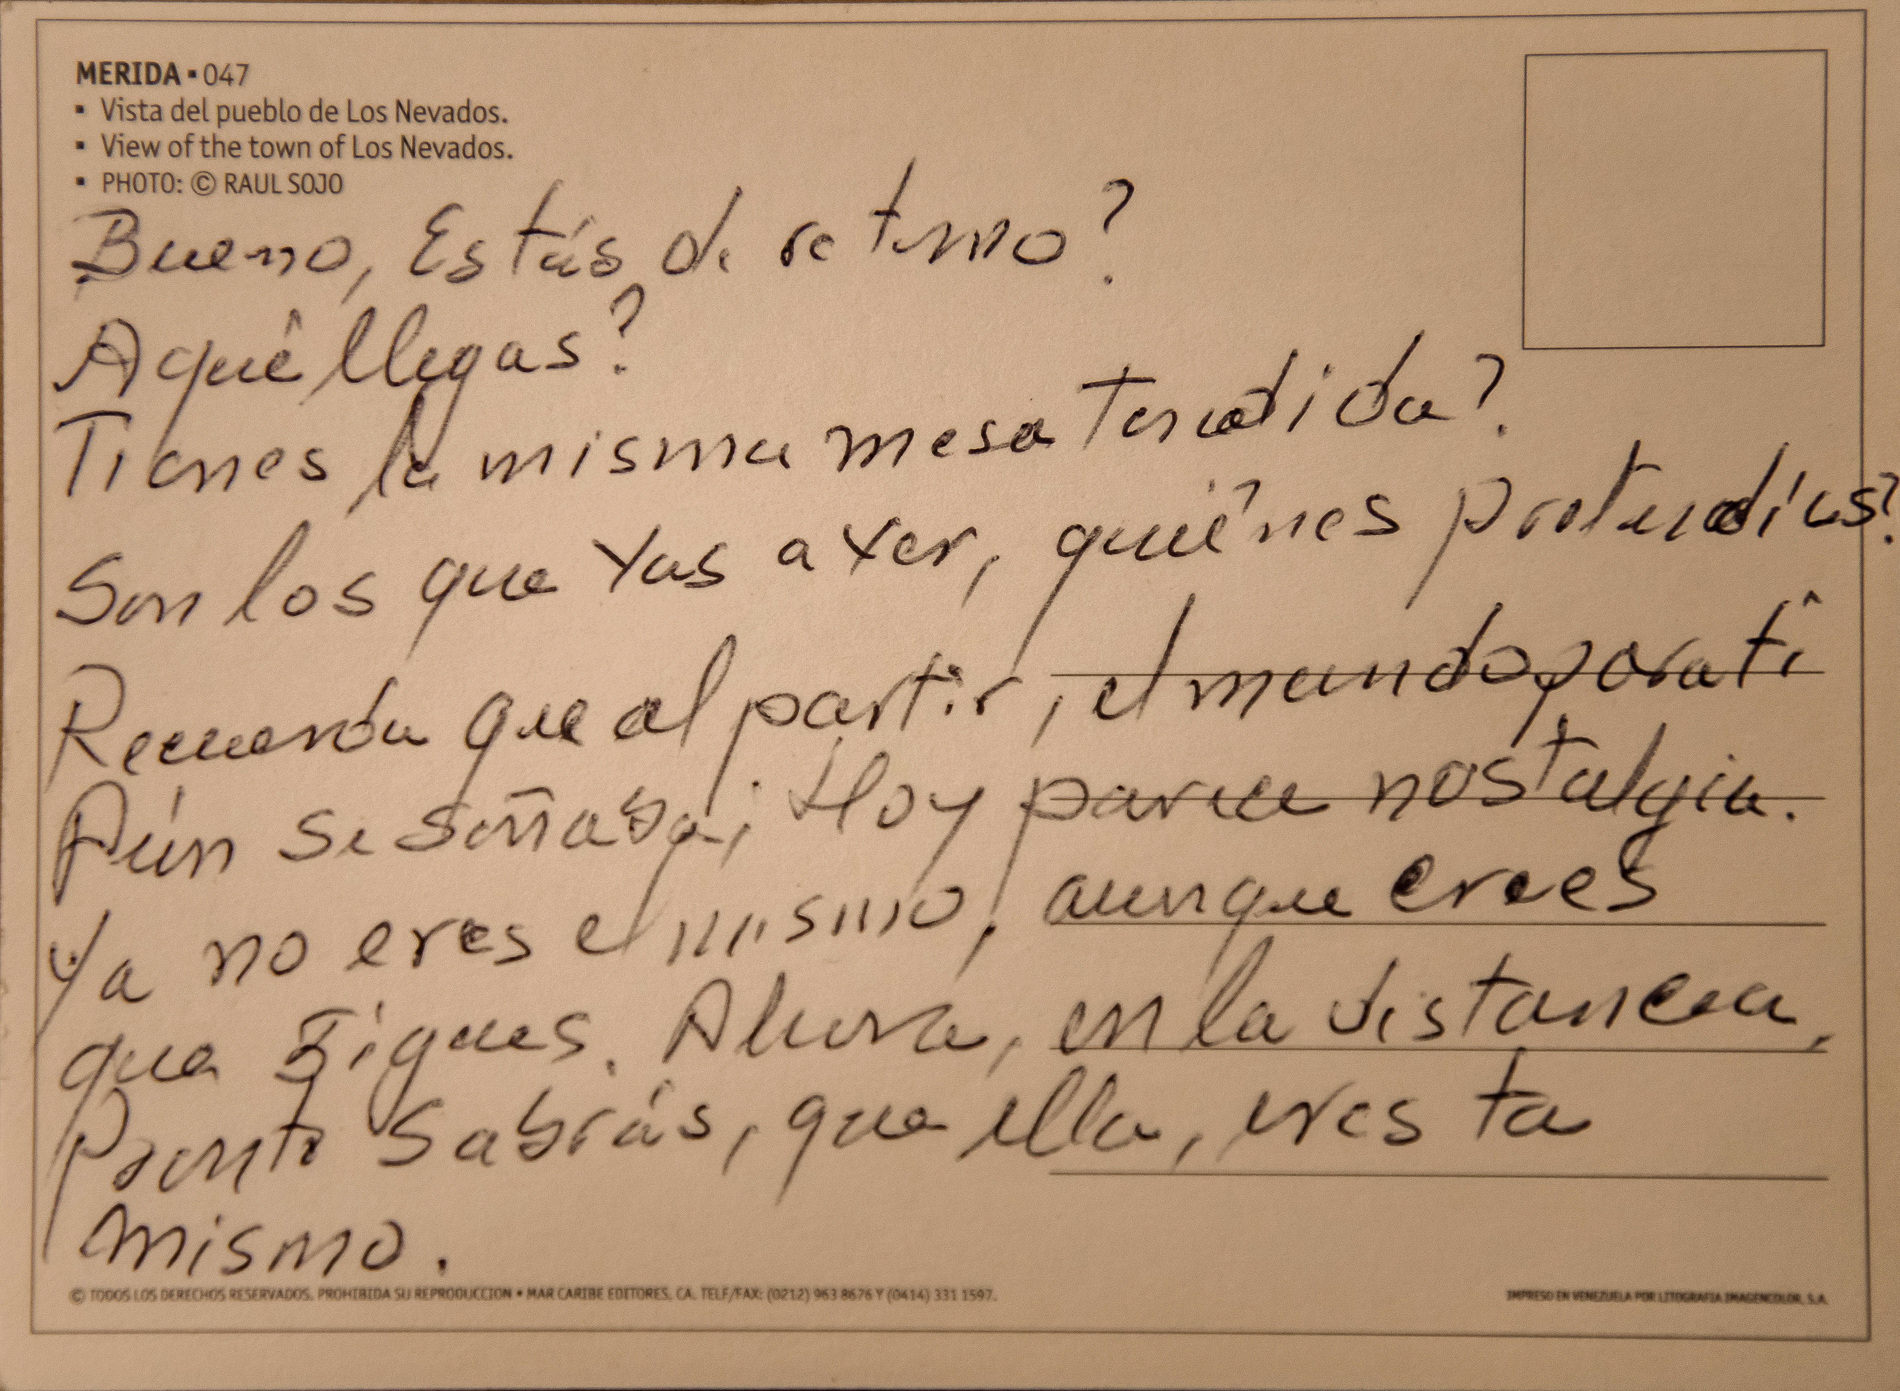 MERIDA ▪ 047
▪ Vista del pueblo de Los Nevados.
▪ View of the town of Los Nevados.
▪ PHOTO: © RAUL SOJO
Bueno, Estás de retorno?
A qué llegas?
Tienes la misma mesa Tendida?
Son los que vas a ver, quiénes pretendías?
Recuerda que al partir, el mundo para tí
Aún se soñaba; Hoy parece nostalgia.
Ya no eres el mismo, aunque crees
que sigues. Ahora, en la distancia,
Pronto sabrás, que ella, eres tu
mismo.
© TODOS LOS DERECHOS RESERVADOS. PROHIBIDA SU REPRODUCCION • MAR CARIBE EDITORES, CA. TELF/FAX: (0212) 963 8676 Y (0414) 331 1597.
IMPRESO EN VENEZUELA POR LITOGRAFIA IMAGENCOLOR, S.A.